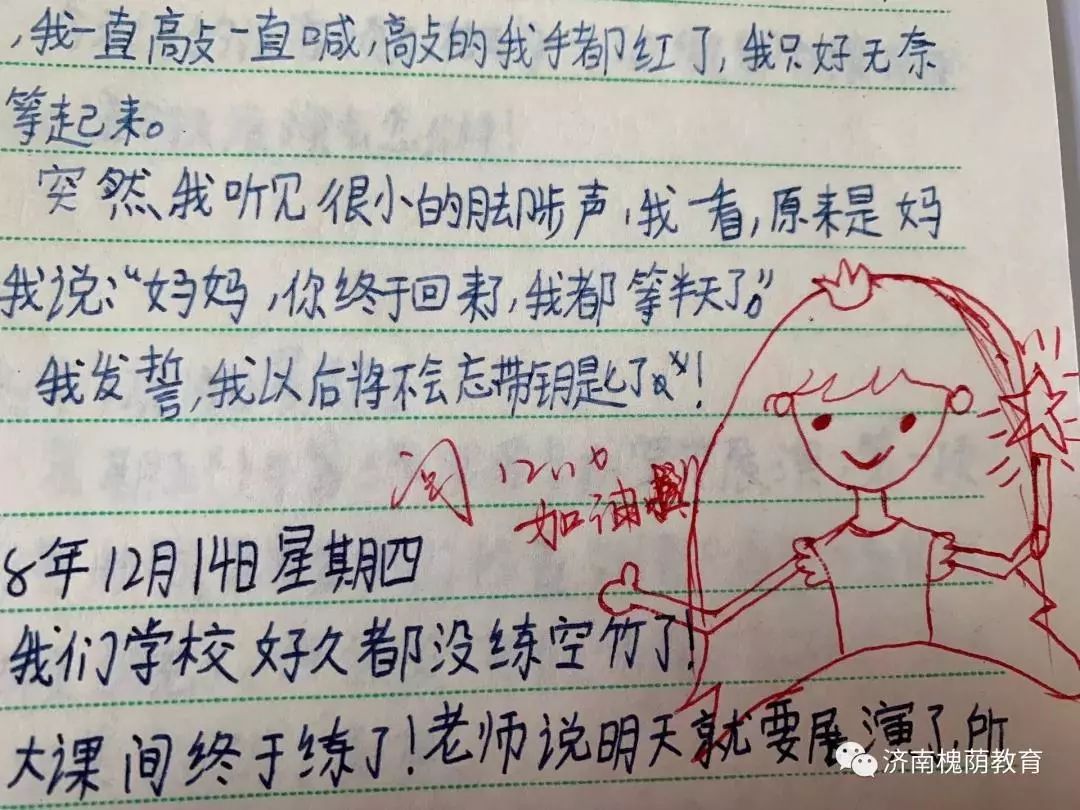 ，我一直高攴一直喊，高攴的我手都红了，我只好无奈
等起来。
突然，我听见很小的脚步声，我一看，原来是妈
我说：“妈妈，你终于回来了，我都等半天了。”
我发誓，我以后将不会忘带钥匙了。”！
阅 12.10
加油
8年12月14日星期四
我们学校好久都没练空竹了！
大课间终于练了！老师说明天就要展演了，所
济南槐荫教育